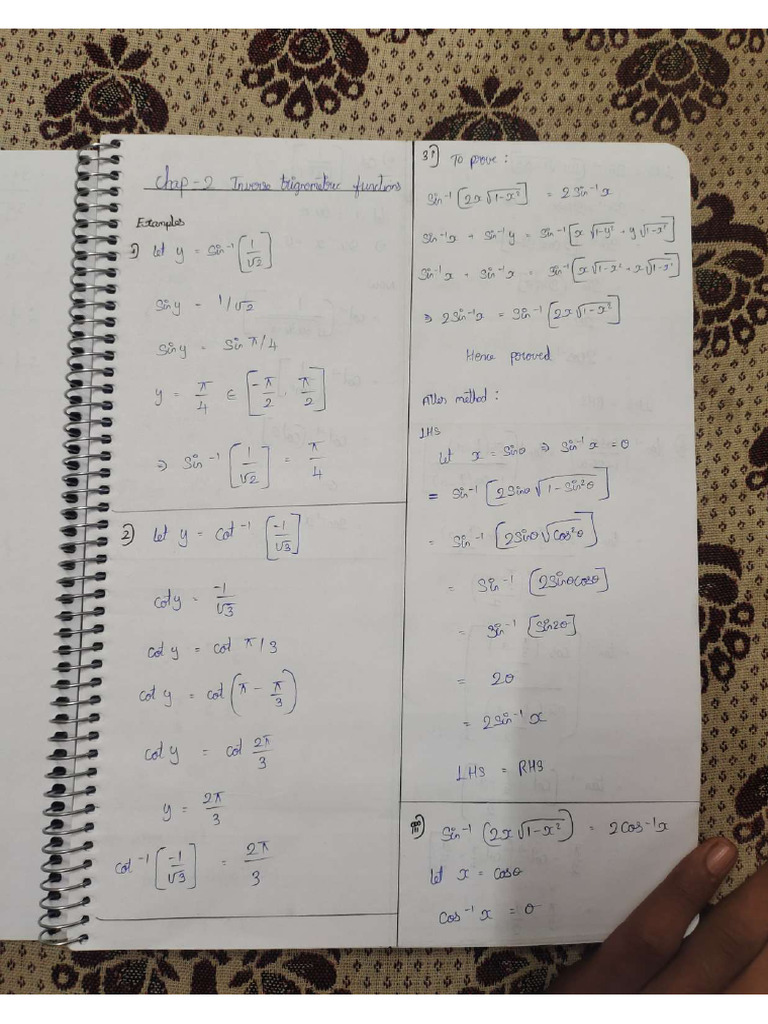 Chap - 2 Inverse trignometric functions
Examples
1) let y = Sin⁻¹ [1/√2]
Sin y = 1/√2
Sin y = Sin π/4
y = π/4 ∈ [-π/2, π/2]
⇒ Sin⁻¹ [1/√2] = π/4
2) let y = cot⁻¹ [-1/√3]
cot y = -1/√3
cot y = cot π/3
cot y = cot (π - π/3)
cot y = cot 2π/3
y = 2π/3
cot⁻¹ [-1/√3] = 2π/3
3 i) To prove :
Sin⁻¹ [2x√1-x²] = 2Sin⁻¹x
Sin⁻¹x + Sin⁻¹y = Sin⁻¹ [x√1-y² + y√1-x²]
Sin⁻¹x + Sin⁻¹x = Sin⁻¹ [x√1-x² + x√1-x²]
⇒ 2Sin⁻¹x = Sin⁻¹ [2x√1-x²]
Hence proved
Alter method :
LHS
let x = Sinθ ⇒ Sin⁻¹x = θ
= Sin⁻¹ [2Sinθ√1-Sin²θ]
= Sin⁻¹ [2Sinθ√Cos²θ]
= Sin⁻¹ [2Sinθcosθ]
= Sin⁻¹ [Sin2θ]
= 2θ
= 2Sin⁻¹x
LHS = RHS
ii) Sin⁻¹ (2x√1-x²) = 2Cos⁻¹x
let x = Cosθ
Cos⁻¹x = θ